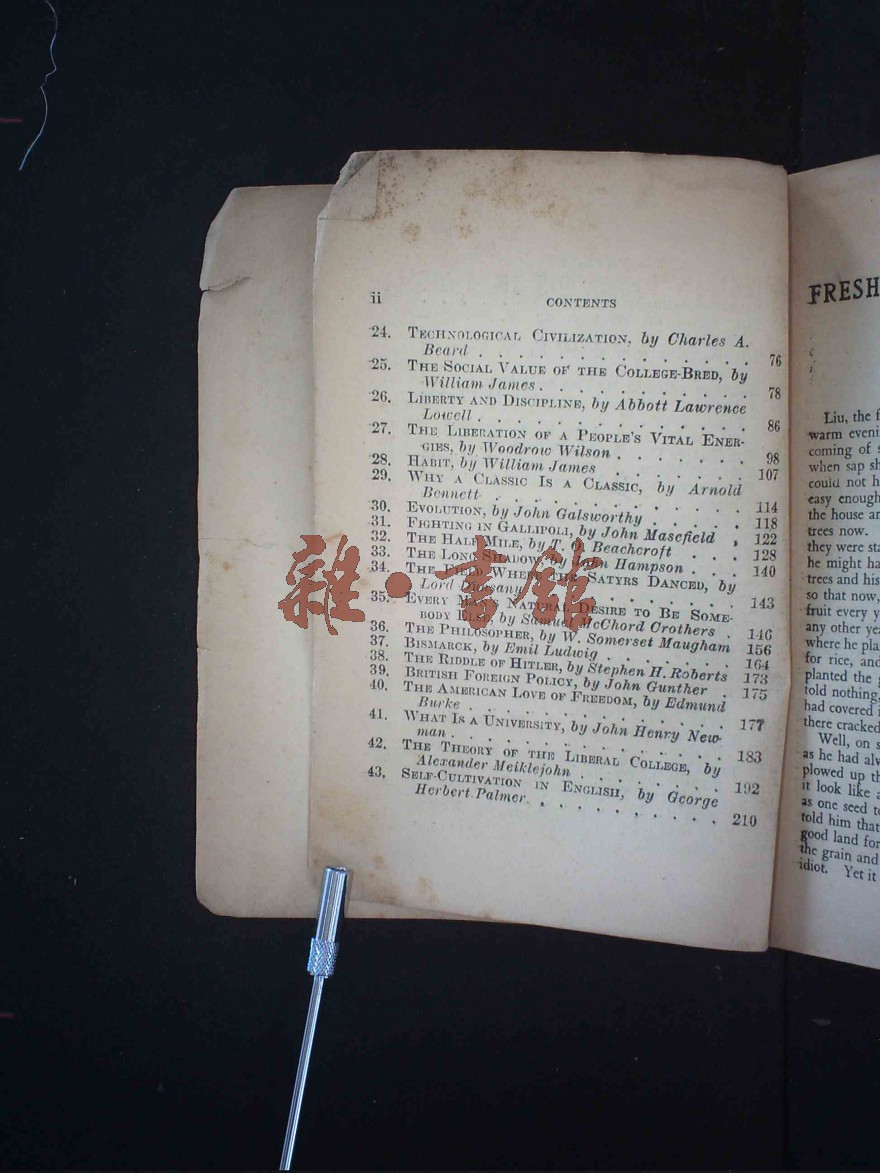 ii CONTENTS
24. TECHNOLOGICAL CIVILIZATION, by Charles A.
Beard . . . . . . . . . . . . . . . 76
25. THE SOCIAL VALUE OF THE COLLEGE-BRED, by
William James . . . . . . . . . . . 78
26. LIBERTY AND DISCIPLINE, by Abbott Lawrence
Lowell . . . . . . . . . . . . . . . 86
27. THE LIBERATION OF A PEOPLE'S VITAL ENER-
GIES, by Woodrow Wilson . . . . . . . 98
28. HABIT, by William James . . . . . . 107
29. WHY A CLASSIC IS A CLASSIC, by Arnold
Bennett . . . . . . . . . . . . . . 114
30. EVOLUTION, by John Galsworthy . . . . 118
31. FIGHTING IN GALLIPOLI, by John Masefield . 122
32. THE HALF MILE, by T. O. Beachcroft . . . 128
33. THE LONG SHADOW, by John Hampson . . . 140
34. THE FIELD WHERE THE SATYRS DANCED, by
Lord Dunsany . . . . . . . . . . . 143
35. EVERY MAN'S NATURAL DESIRE TO BE SOME-
BODY ELSE, by Samuel McChord Crothers . 146
36. THE PHILOSOPHER, by W. Somerset Maugham 156
37. BISMARCK, by Emil Ludwig . . . . . . . 164
38. THE RIDDLE OF HITLER, by Stephen H. Roberts 173
39. BRITISH FOREIGN POLICY, by John Gunther . 175
40. THE AMERICAN LOVE OF FREEDOM, by Edmund
Burke . . . . . . . . . . . . . . . 177
41. WHAT IS A UNIVERSITY, by John Henry New-
man . . . . . . . . . . . . . . . . 183
42. THE THEORY OF THE LIBERAL COLLEGE, by
Alexander Meiklejohn . . . . . . . . 192
43. SELF-CULTIVATION IN ENGLISH, by George
Herbert Palmer . . . . . . . . . . . 210
雜·書館
FRESH
Liu, the f
warm eveni
coming of s
when sap sh
could not h
easy enough
the house an
trees now.
they were sta
he might ha
trees and his
so that now,
fruit every y
any other yea
where he pla
for rice, and
planted the g
told nothing,
had covered i
there cracked
Well, on s
as he had alw
plowed up th
it look like a
as one seed to
told him that
good land for
the grain and
idiot. Yet it